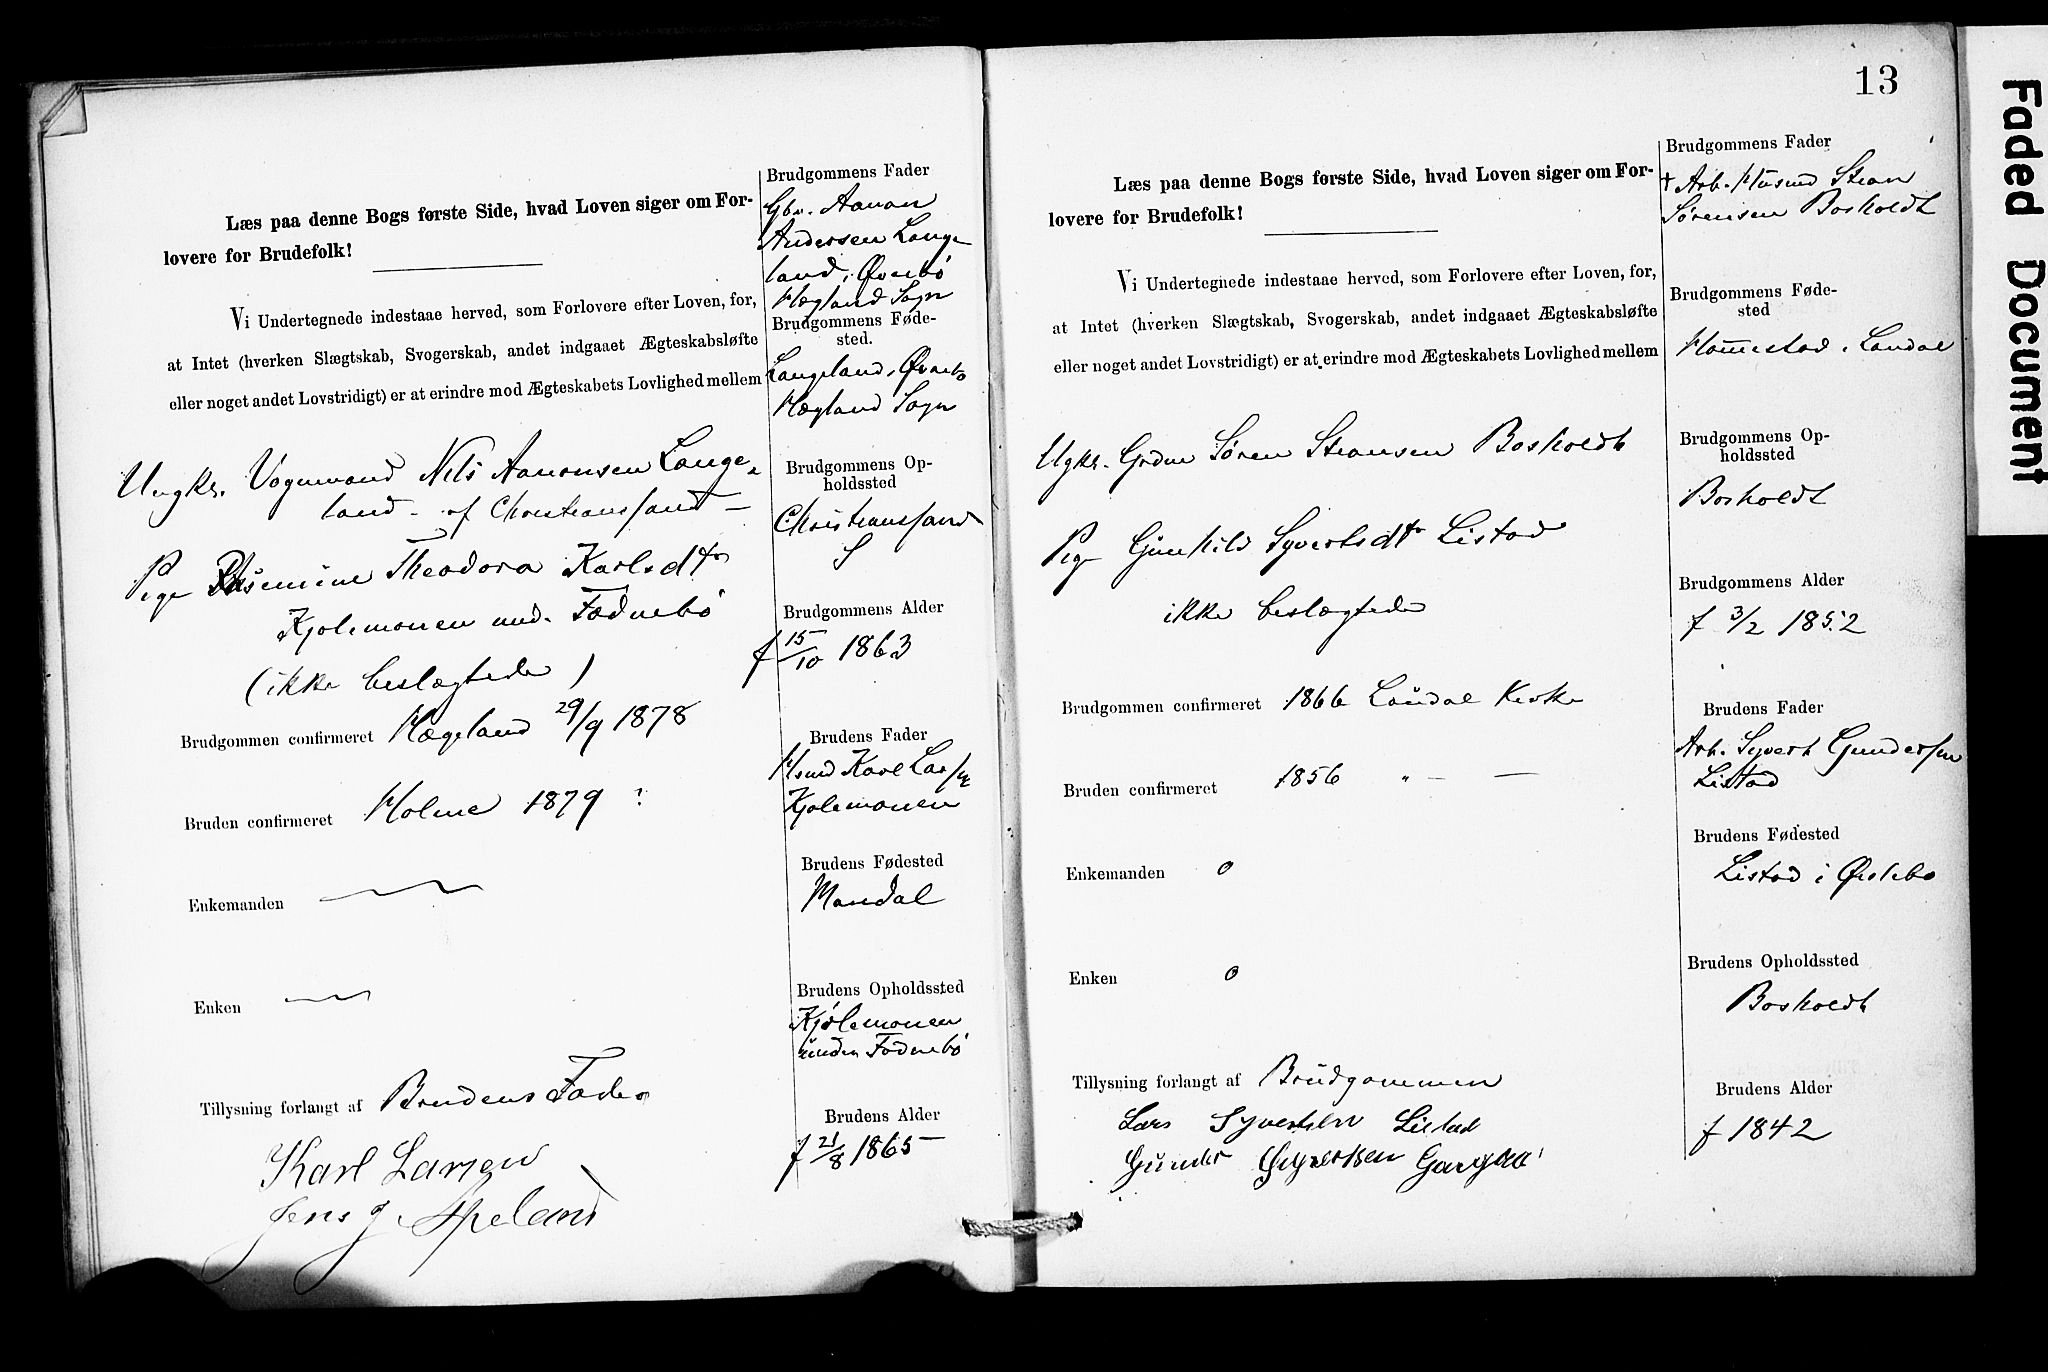 Læs paa denne Bogs første Side, hvad Loven siger om For-
lovere for Brudefolk!
Vi Undertegnede indestaae herved, som Forlovere efter Loven, for,
at Intet (hverken Slægtskab, Svogerskab, andet indgaaet Ægteskabsløfte
eller noget andet Lovstridigt) er at erindre mod Ægteskabets Lovlighed mellem
Ungkr. Vognmand Nils Aanonsen Lange-
land - af Christianssand -
Pige Theodora Karlsdtr
Kjølemonen und. Fodnebø
(ikke beslægtede)
Brudgommen confirmeret Hægeland 29/9 1878
Bruden confirmeret Holme 1879 ?
Enkemanden
Enken
Tillysning forlangt af Brudens Fader
Karl Larsen
Jens J. Aspeland
Brudgommens Fader
Gbr. Aanon
Andersen Lange
land i Øvrebø
Hægland Sogn
Brudgommens Føde-
sted.
Langeland, Øvrebø
Hægland Sogn
Brudgommens Op-
holdssted
Christianssand
S
Brudgommens Alder
f 15/10 1863
Brudens Fader
Hsmd Karl Larsen
Kjølemonen
Brudens Fødested
Mandal
Brudens Opholdssted
Kjølemonen
under Fodnebø
Brudens Alder
f 21/8 1865
13
Læs paa denne Bogs første Side, hvad Loven siger om For-
lovere for Brudefolk!
Vi Undertegnede indestaae herved, som Forlovere efter Loven, for,
at Intet (hverken Slægtskab, Svogerskab, andet indgaaet Ægteskabsløfte
eller noget andet Lovstridigt) er at erindre mod Ægteskabets Lovlighed mellem
Ugkr. Grdm Søren Steansen Bosholdt
Pige Gunhild Syvertsdtr Listad
ikke beslægtede
Brudgommen confirmeret 1866 Laudal Kirke
Bruden confirmeret 1856 " - —
Enkemanden 0
Enken 0
Tillysning forlangt af Brudgommen
Lars Syvertsen Listad
Gunder Syvertsen
Brudgommens Fader
+ Arb. Husmd Stean
Sørensen Bosholdt
Brudgommens Føde-
sted
Hommestad i Laudal
Brudgommens Op-
holdssted
Bosholdt
Brudgommens Alder
f 3/2 1852
Brudens Fader
Arb. Syvert Gundersen
Listad
Brudens Fødested
Listad i Øislebø
Brudens Opholdssted
Bosholdt
Brudens Alder
f 1842
Faded Document